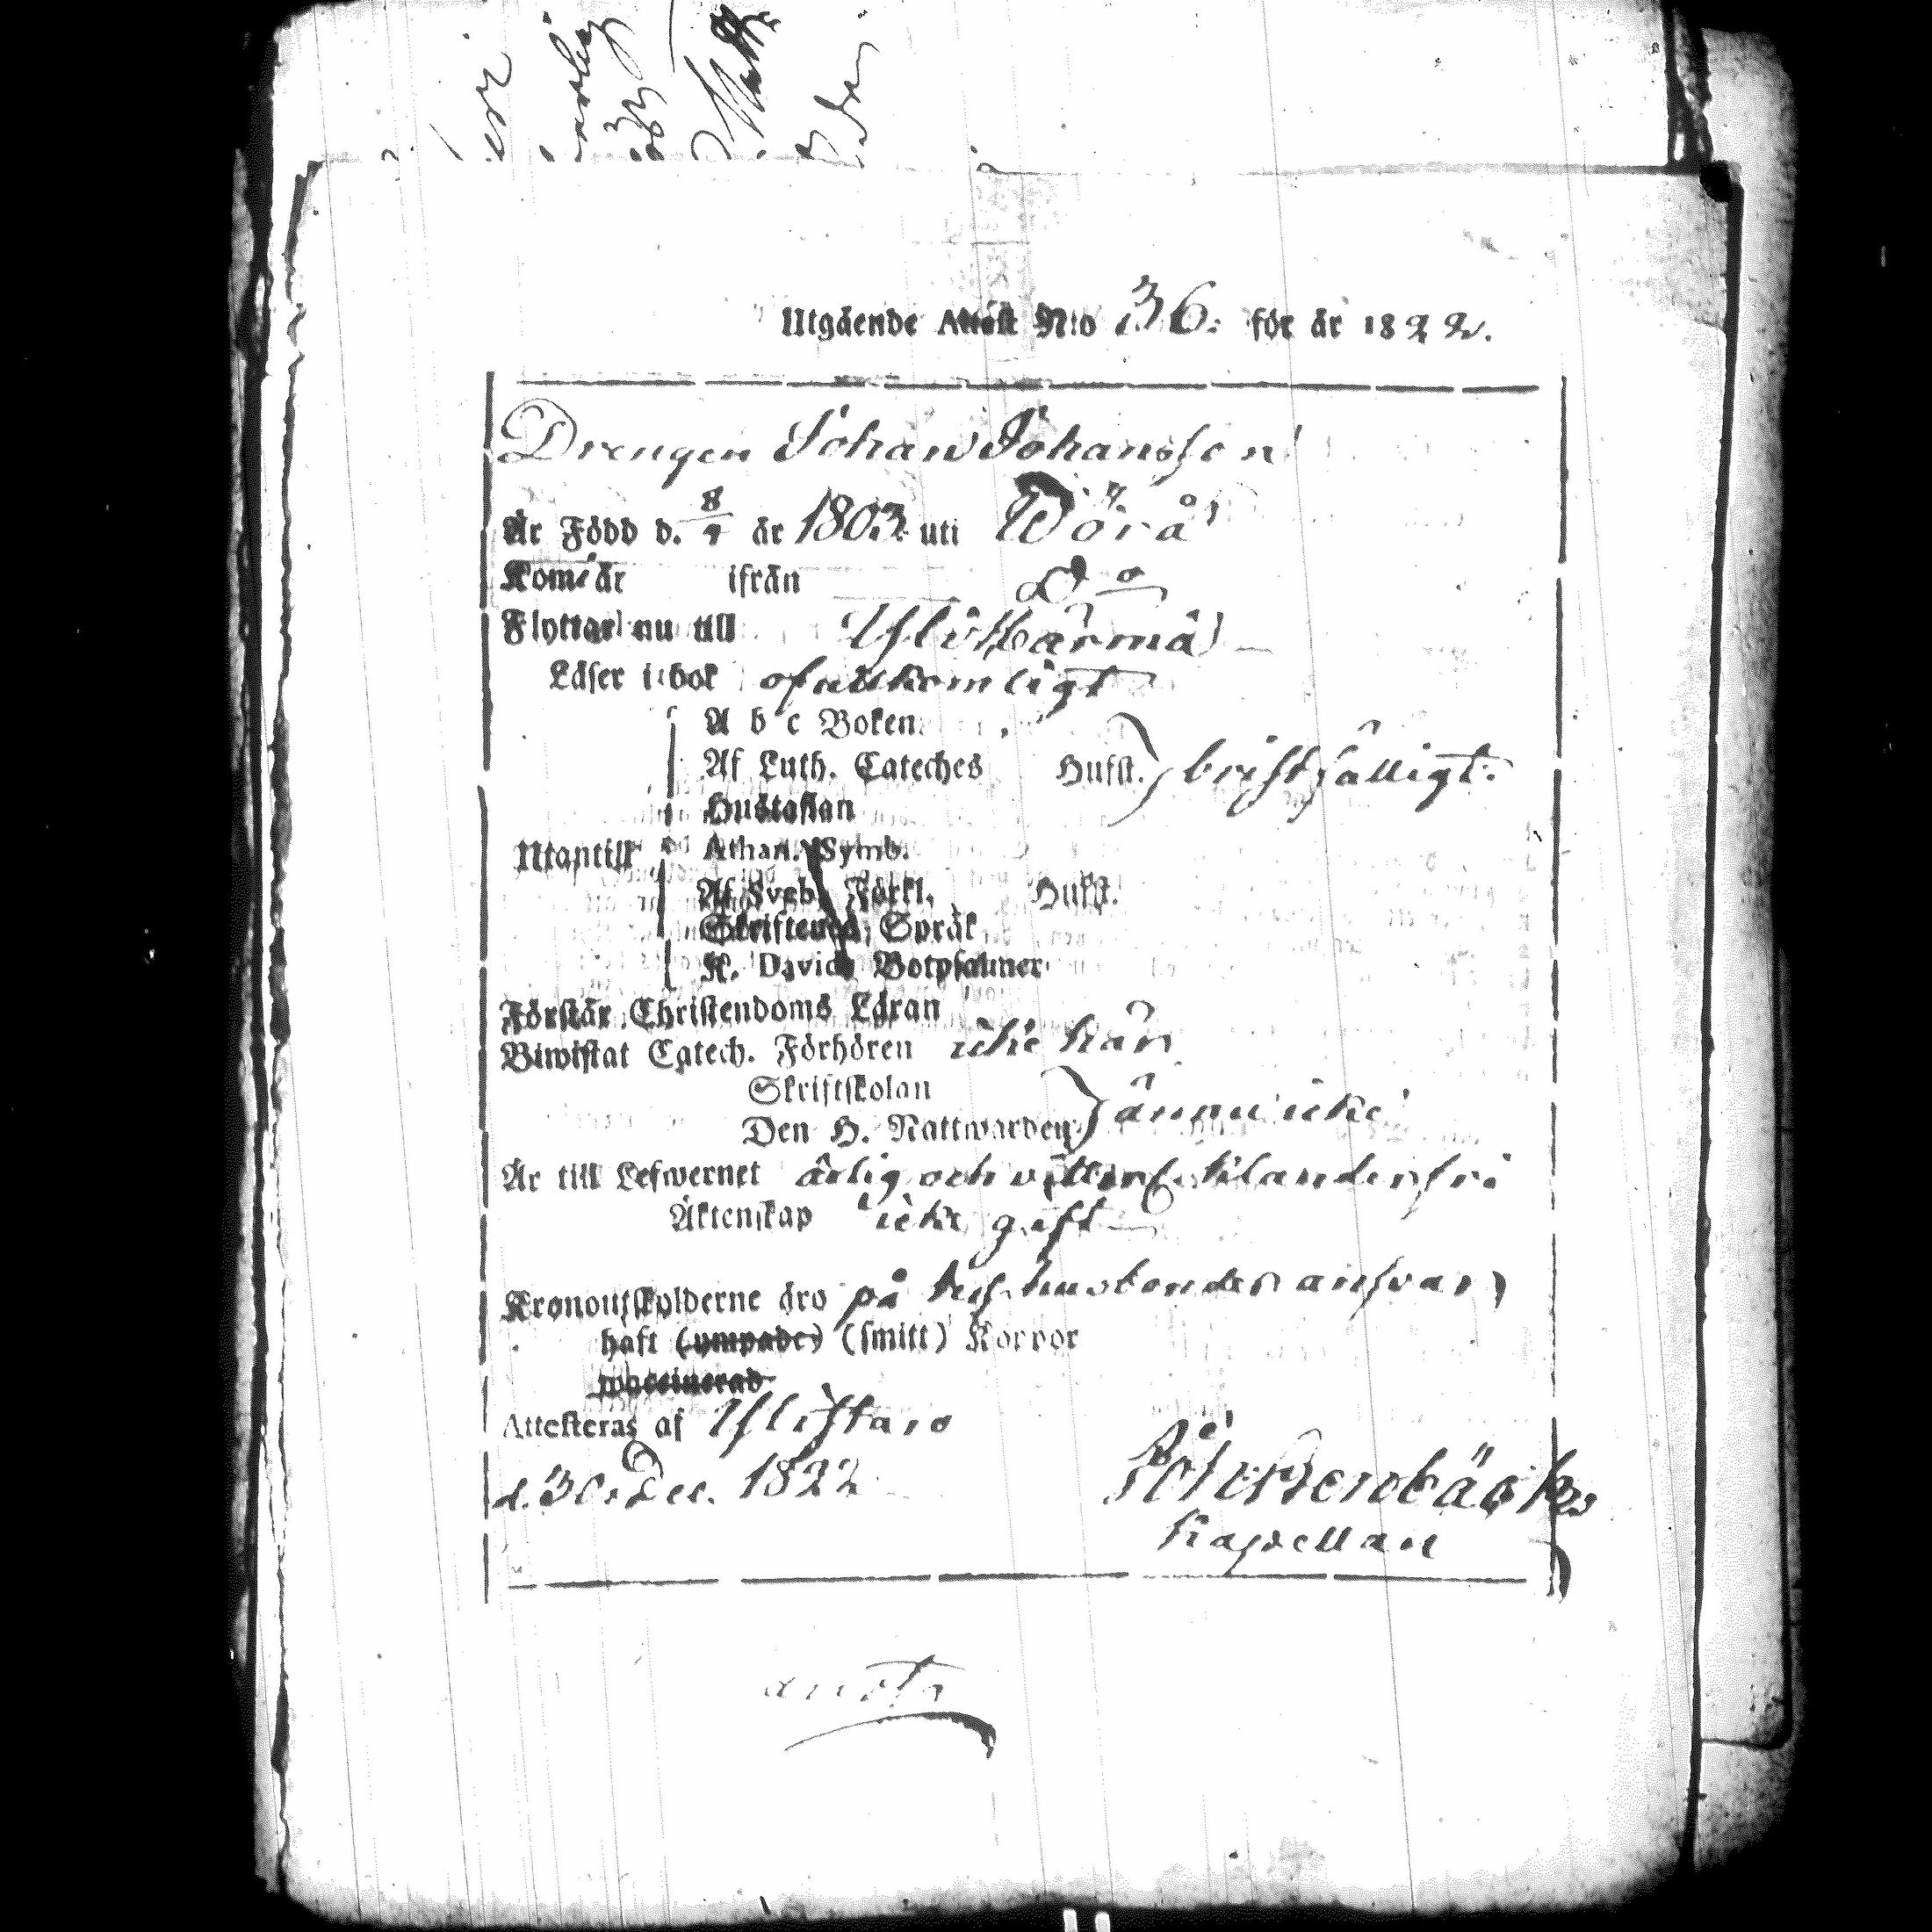 Utgående Attest N:o 36. för år 1822.
Drengen Johan Johansson
Är Född d. 8/4 år 1803 uti Wörå
Kom år ifrån Do
Flyttar nu till Ylihärmä
Läser i bok ofullkomligt
A b c Boken
Af Luth. Cateches Hufst. bristfälligt.
Hustaflan
Utantill Athan. Symb.
Af Sveb. Förkl. Hufst.
Skriftenes Språk
K. Davids Botpsalmer
Förstår Christendoms Läran
Biwistat Catech. Förhören icke här
Skriftskolan
Den H. Nattwarden ännu icke
Är till Lefwernet ärlig och klanderfri
Äktenskap icke gift
Kronoutskylderne äro på husbondens ansvar
haft (ympade) (smitt) Koppor
waccinerad
Attesteras af Ylistaro
d. 30 Dec. 1822
Kapellan